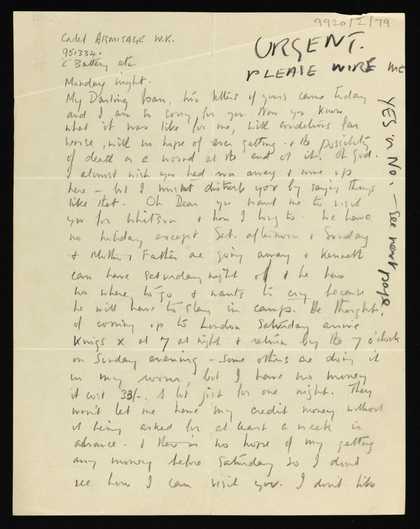 9920/2/79
Cadet ARMITAGE W.K.
951334.
C Battery etc
URGENT.
PLEASE WIRE ME
YES or No. — see next page.
Monday night.
My Darling Joan, two letters of yours came today
and I am so sorry for you. Now you know
what it was like for me, with conditions far
worse, with no hope of ever getting & the possibility
of death or a wound at the end of it. Oh God.
I almost wish you had run away & come up
here – but I mustn't disturb you by saying things
like that. Oh Dear you want me to visit
you for Whitsun & how I long to. We have
no holiday except Sat. afternoon & Sunday
& Mother & Father are going away & Kenneth
can have Saturday night off & he has
no where to go & wants to cry because
he will have to stay in camp. He thought
of coming up to London Saturday arrive
Kings X at 7 at night & return by the 7 o'clock
on Sunday evening – Some others are doing it
in my room, but I have no money
it cost 33/-. A lot just for one night. They
won't let me have my credit money without
it being asked for at least a week in
advance. & there is no hope of my getting
any money before Saturday so I don't
see how I can visit you. I don't like